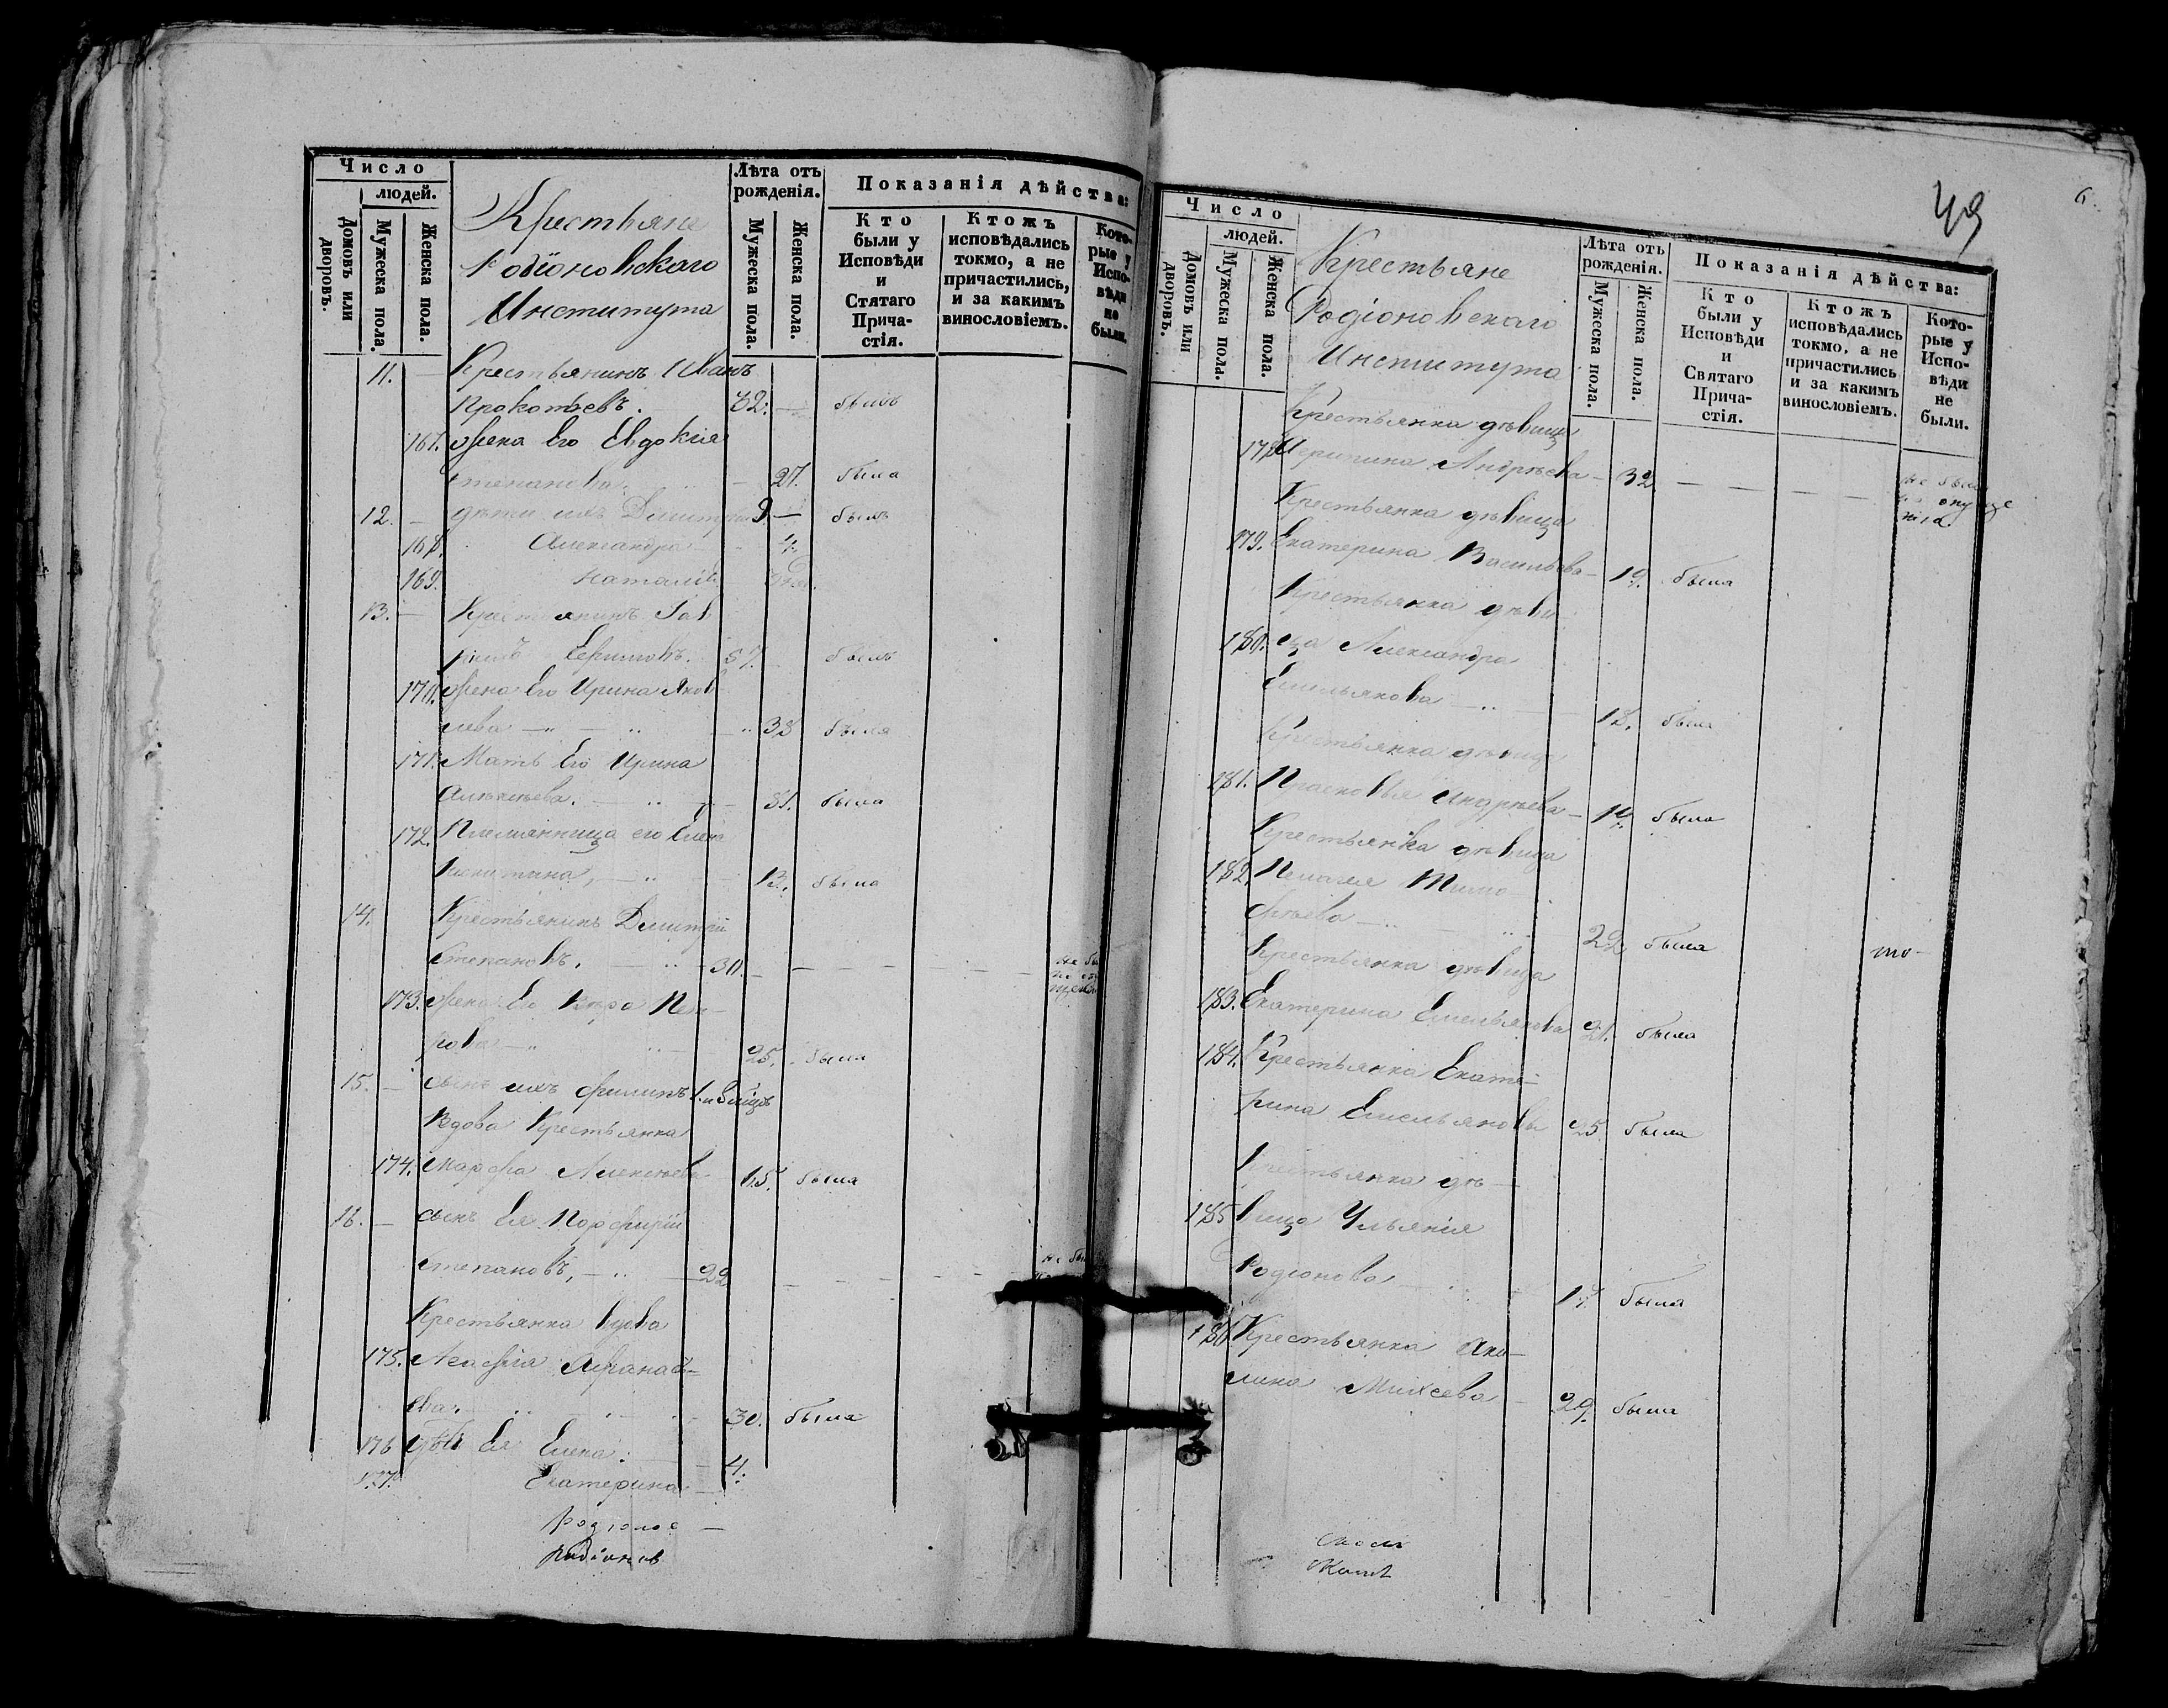 Число
людей.
Домовъ или дворовъ.
Мужеска пола.
Женска пола.
Крестьяне
Родіоновскаго
Института
Лѣта отъ рожденія.
Мужеска пола.
Женска пола.
Показанія дѣйства:
Кто были у Исповѣди и Стятаго Прича-стія.
Ктожъ исповѣдались токмо, а не причастились, и за какимъ винословіемъ.
Кото-рые у Испо-вѣди не были.
11. — Крестьянинъ Иванъ
Прокопьевъ. 32. — былъ
167. Жена Его Евдокія
Степанова. — 27. была
12. — дѣти ихъ Димитрій 9 — былъ
168. Александра 4.
169. Наталія
13. — Крестьянинъ Гав
ріилъ Ефимовъ. 57. былъ
170. Жена Его Ирина Яков
лева — 38 была
171. Мать Его Ирина
Алексѣева. — 81. была
172. Племянница его Елена
Никитина, — 13. была
14. Крестьянинъ Димитрій
Степановъ. 30. — — — — —
173. Жена Его Пет-
рова — 25. была
15. — сынъ ихъ Филиппъ
Вдова Крестьянка
174. Марфа Алексѣева 65. была
16. — сынъ Ея Порфирій
Степановъ, — 22 — — — — —
Крестьянка вдова
175. Агафія Афанась-
ева. 30. была
176 дѣти Ея Елена.
177. Екатерина — 4.
49
6
Число
людей.
Домовъ или дворовъ.
Мужеска пола.
Женска пола.
Крестьяне
Родіоновскаго
Института
Лѣта отъ рожденія.
Мужеска пола.
Женска пола.
Показанія дѣйства:
Кто были у Исповѣди и Святаго Прича-стія.
Ктожъ исповѣдались токмо, а не причастились и за какимъ винословіемъ.
Кото-рые у Испо-вѣди не были.
Крестьянка дѣвица
178 Андрѣева — 32. — — —
Крестьянка дѣвица
179. Екатерина Васильева — 19. была
Крестьянка дѣви
180. ца Александра
Емельянова — 18. была
Крестьянка дѣвица
181. Прасковья Андрѣева — была
Крестьянка дѣвица
182. Пелагея Тимо
фѣева — 22 была
Крестьянка дѣвица
183. Екатерина Емельянова 21. была
184. Крестьянка Екате-
рина Емельянова 25. была
Крестьянка дѣ —
185 вица Ульянія
Родіонова была
186 Крестьянка Аку-
лина Михеева — 29. была